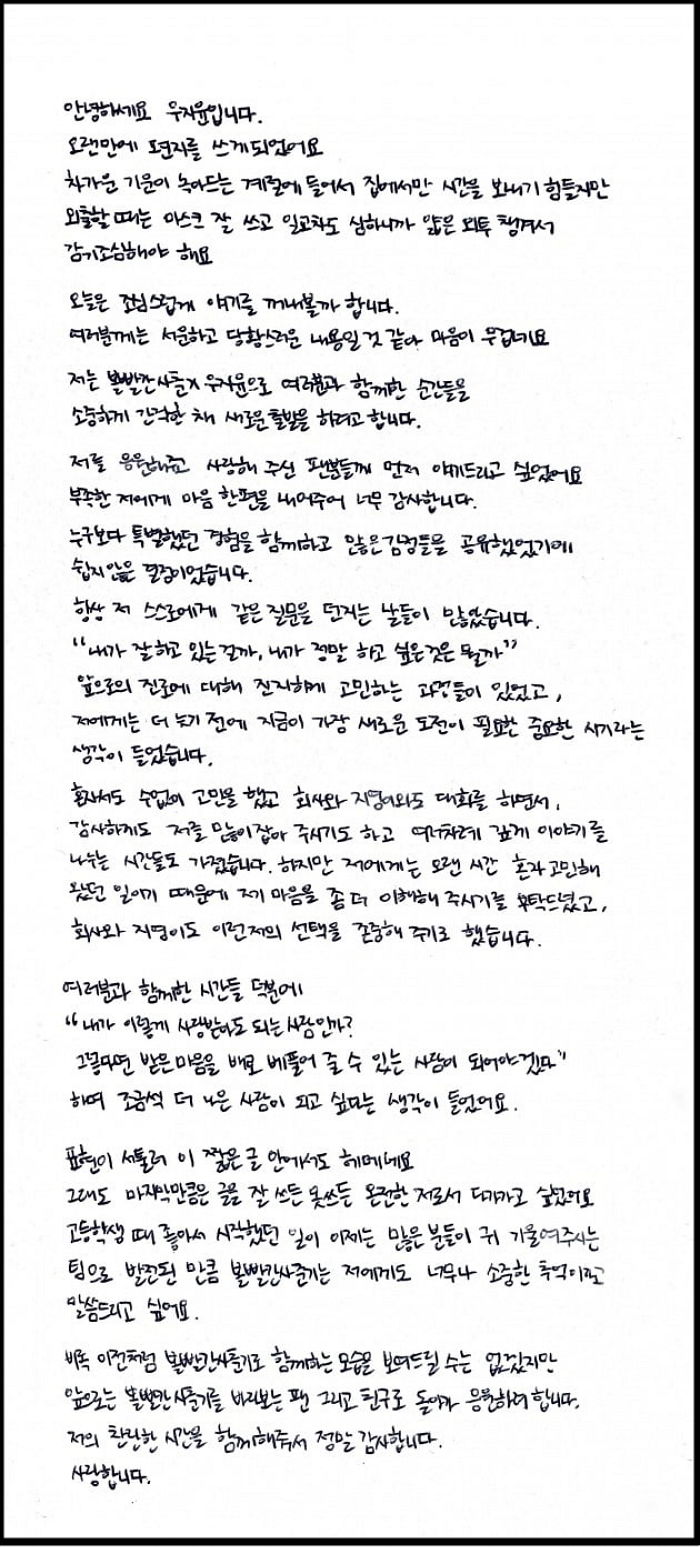 안녕하세요 우지윤입니다.
오랜만에 편지를 쓰게되었어요
차가운 기운이 녹아드는 계절에 들어서 집에서만 시간을 보내기 힘들지만
외출할 때는 마스크 잘 쓰고 일교차도 심하니까 얇은 외투 챙겨서
감기조심해야 해요
오늘은 조심스럽게 얘기를 꺼내볼까 합니다.
여러분께는 서운하고 당황스러운 내용일 것 같아 마음이 무겁네요
저는 볼빨간사춘기 우지윤으로 여러분과 함께한 순간들을
소중하게 간직한 채 새로운 출발을 하려고 합니다.
저를 응원해주고 사랑해 주신 팬분들께 먼저 얘기드리고 싶었어요
부족한 저에게 마음 한편을 내어주어 너무 감사합니다.
누구보다 특별했던 경험을 함께하고 많은 감정들을 공유했었기에
쉽지 않은 결정이었습니다.
항상 저 스스로에게 같은 질문을 던지는 날들이 많았습니다.
“내가 잘하고 있는걸까, 내가 정말 하고 싶은것은 뭘까”
앞으로의 진로에 대해 진지하게 고민하는 과정들이 있었고,
저에게는 더 늦기 전에 지금이 가장 새로운 도전이 필요한 중요한 시기라는
생각이 들었습니다.
혼자서도 수없이 고민을 했고 회사와 지영이와도 대화를 하면서,
감사하게도 저를 많이 잡아 주시기도 하고 여러차례 깊게 이야기를
나누는 시간들도 가졌습니다. 하지만 저에게는 오랜 시간 혼자 고민해
왔던 일이기 때문에 제 마음을 좀 더 이해해 주시기를 부탁드렸고,
회사와 지영이도 이런 저의 선택을 존중해 주기로 했습니다.
여러분과 함께한 시간들 덕분에
“내가 이렇게 사랑받아도 되는 사람인가?
그렇다면 받은 마음을 배로 베풀어 줄 수 있는 사람이 되어야겠다”
하며 조금씩 더 나은 사람이 되고 싶다는 생각이 들었어요.
표현이 서툴러 이 짧은 글 안에서도 헤매네요
그래도 마지막만큼은 글을 잘 쓰든 못쓰든 온전한 저로서 다가가고 싶었어요
고등학생 때 좋아서 시작했던 일이 이제는 많은 분들이 귀 기울여주시는
팀으로 발전된 만큼 볼빨간사춘기는 저에게도 너무나 소중한 추억이라고
말씀드리고 싶어요.
비록 이전처럼 볼빨간사춘기로 함께하는 모습을 보여드릴 수는 없겠지만
앞으로는 볼빨간사춘기를 바라보는 팬 그리고 친구로 돌아가 응원하려 합니다.
저의 찬란한 시간을 함께해줘서 정말 감사합니다.
사랑합니다.